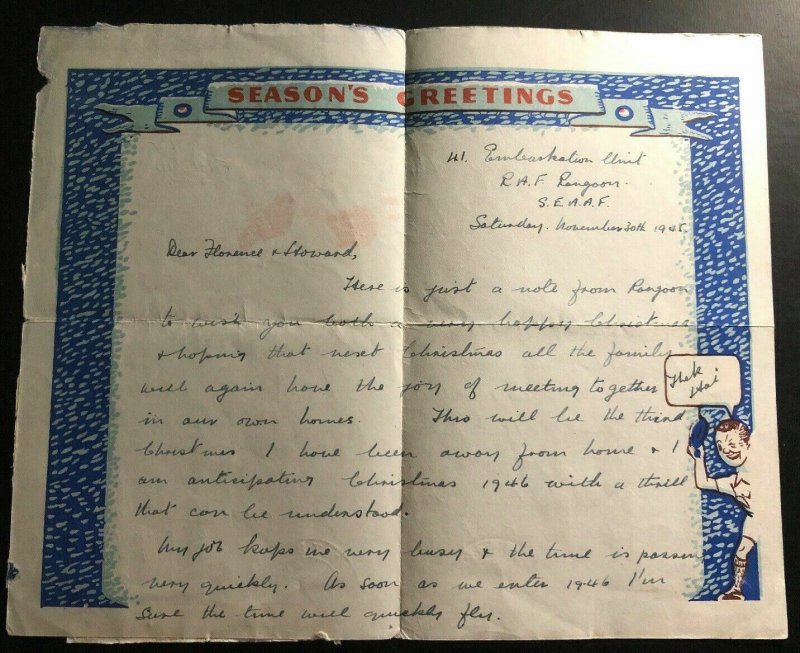 SEASON'S GREETINGS
41. Embarkation Unit
R.A.F Rangoon.
S.E.A.A.F.
Saturday. November 30th 1945.
Dear Florence & Howard,
Here is just a note from Rangoon
to wish you both a very happy Christmas
& hoping that next Christmas all the family
will again have the joy of meeting together
in our own homes. This will be the third
Christmas I have been away from home & I
am anticipating Christmas 1946 with a thrill
that can be understood.
My job keeps me very busy & the time is passing
very quickly. As soon as we enter 1946 I'm
sure the time will quickly fly.
Thek
Hai